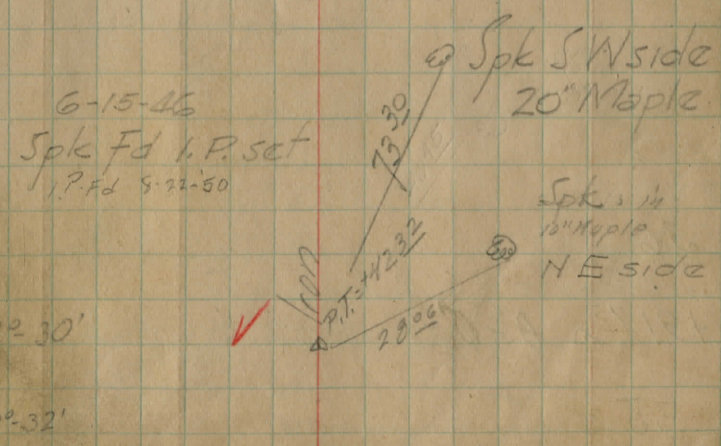 6-15-46
Spk Fd I.P. set
I.P. Fd 8-22-'50
Spk S W side
20" Maple
73 30
Spk in
12" Maple
N E side
Iron
P.T. = +42 32
28 06
°-30'
°-32'